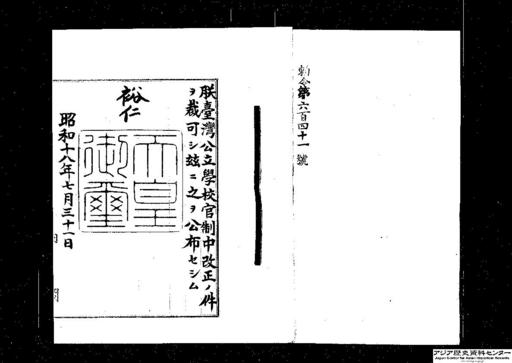 勅令第六百四十一號
朕臺灣公立學校官制中改正ノ件
ヲ裁可シ玆ニ之ヲ公布セシム
裕仁
天皇
御璽
昭和十八年七月三十一日
アジア歴史資料センター
Japan Center for Asian Historical Records